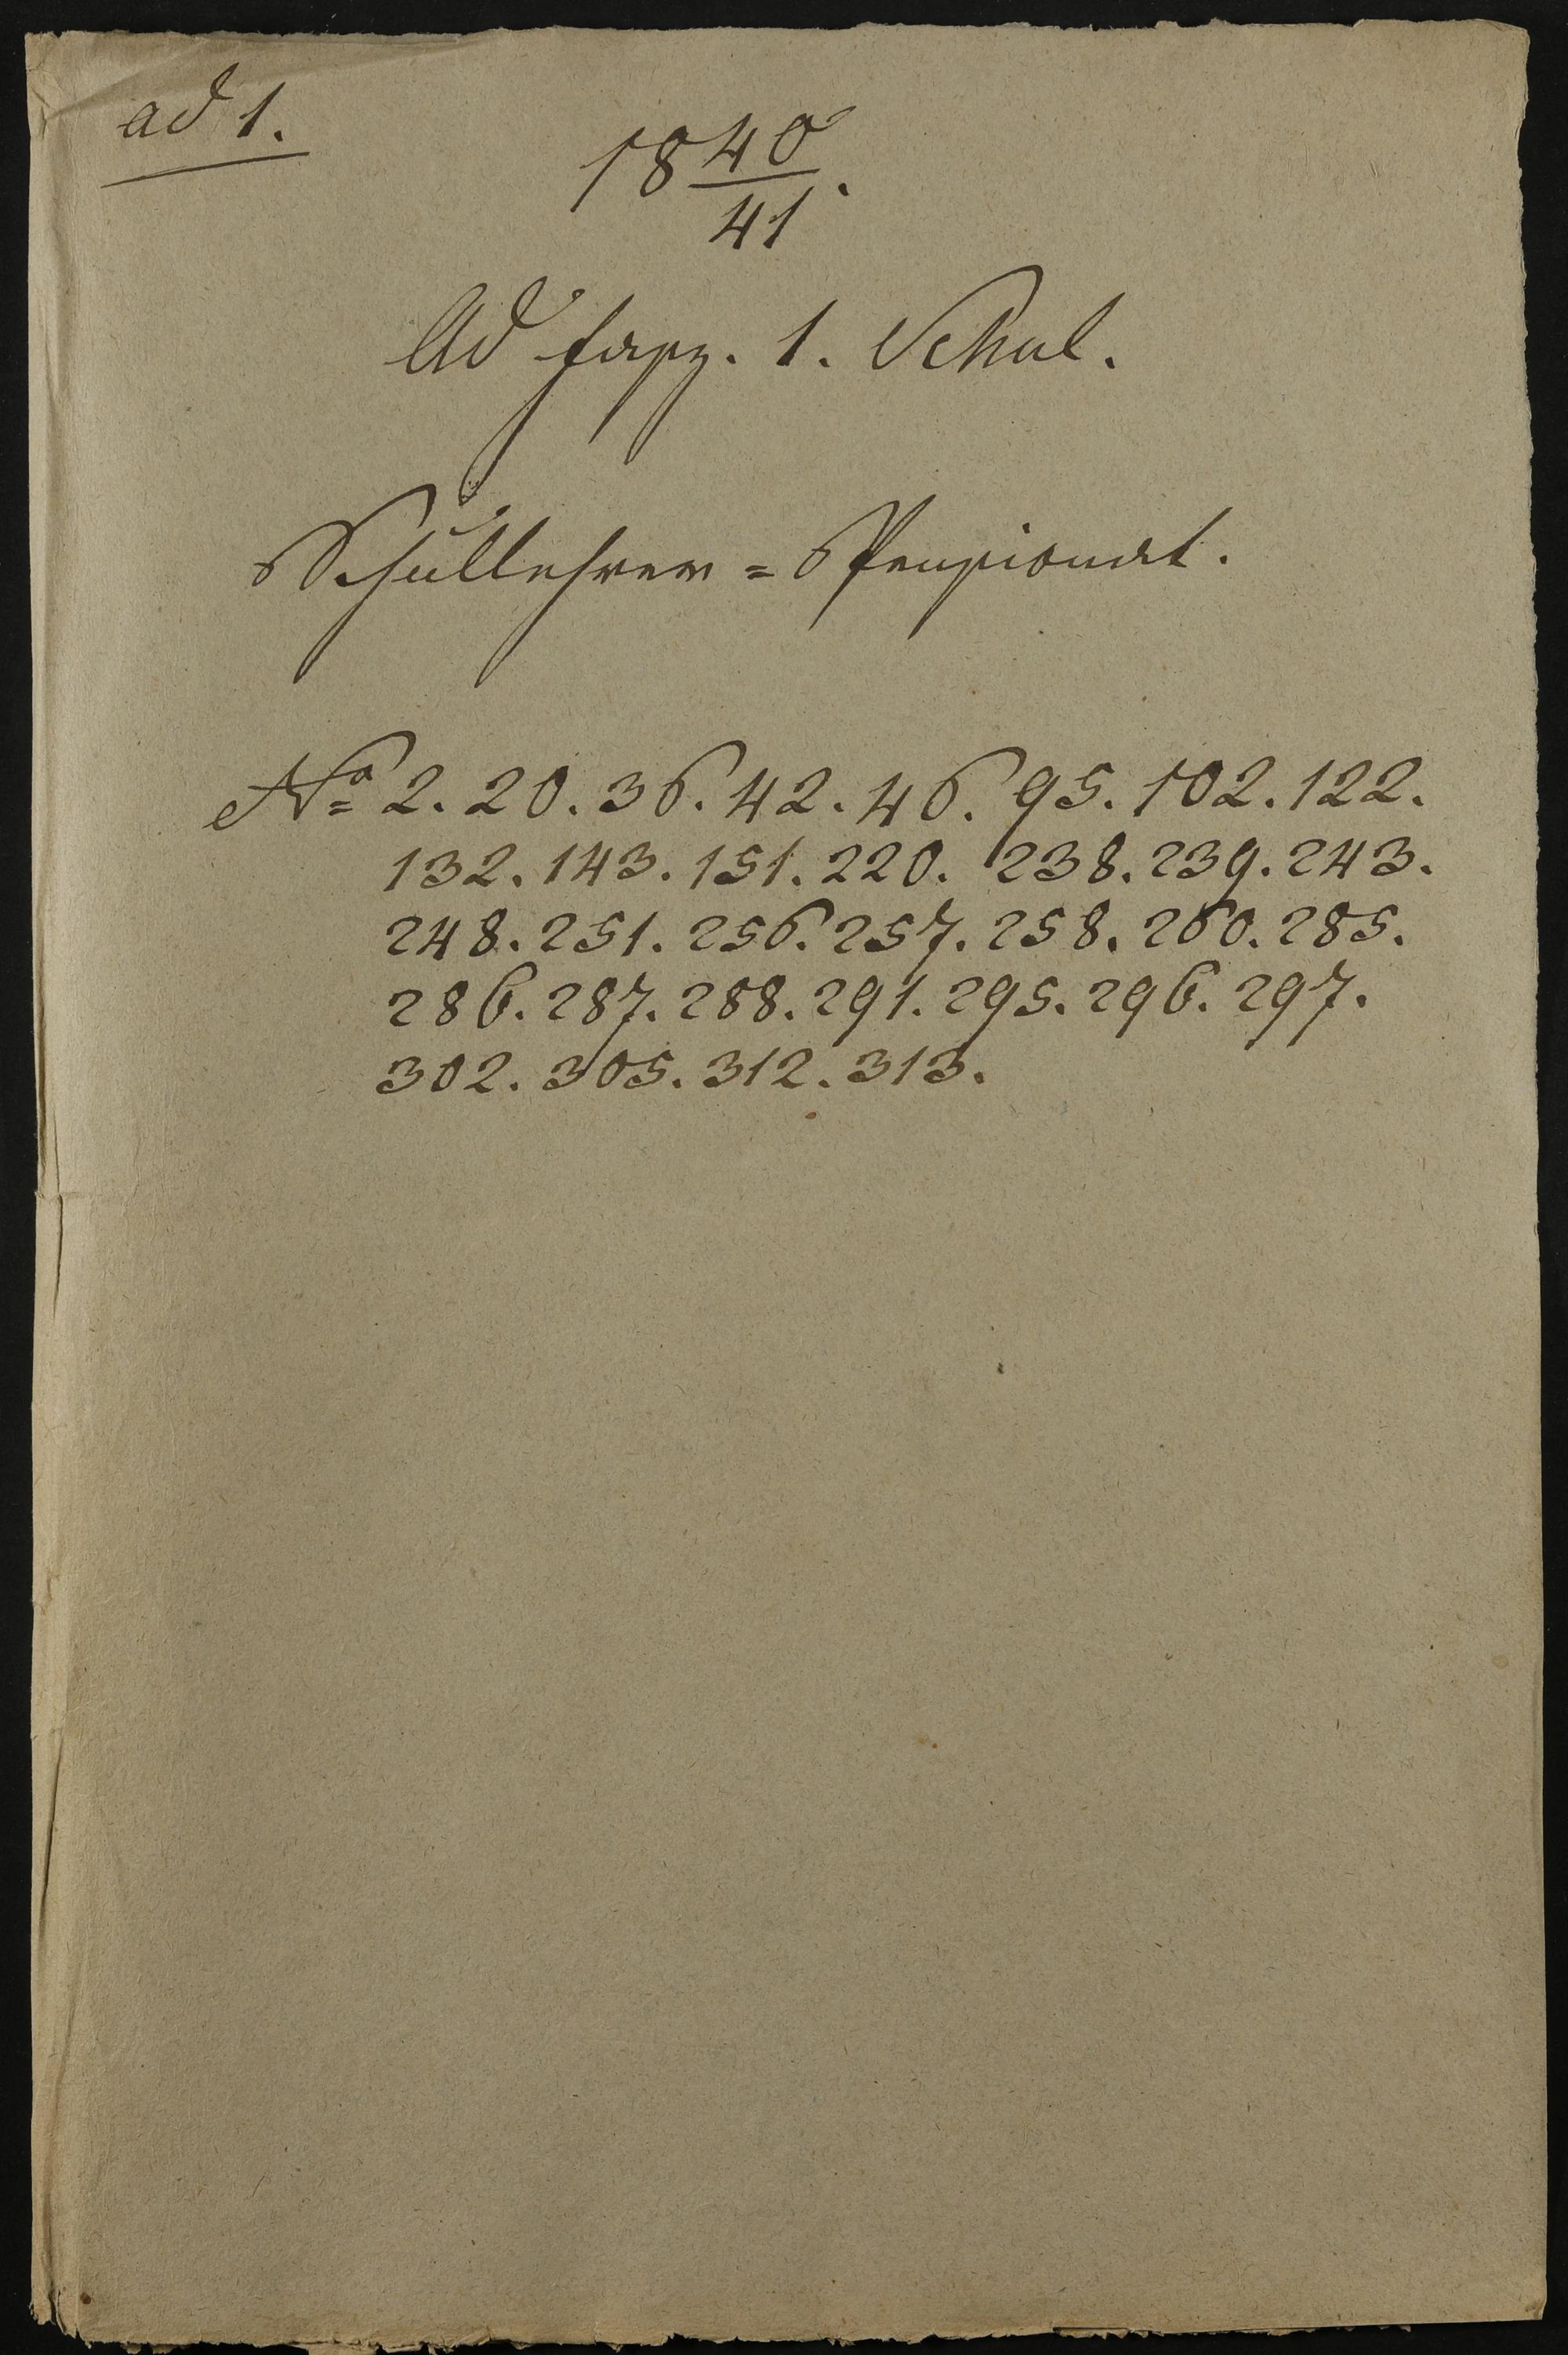 ad 1.
18 40/41.
Ad fasz. 1. Schul.
Schullehrer = Pensionat.
No 2. 20. 36. 42. 46. 95. 102. 122.
132. 143. 151. 220. 238. 239. 243.
248. 251. 256. 257. 258. 260. 285.
286. 287. 288. 291. 295. 296. 297.
302. 305. 312. 313.